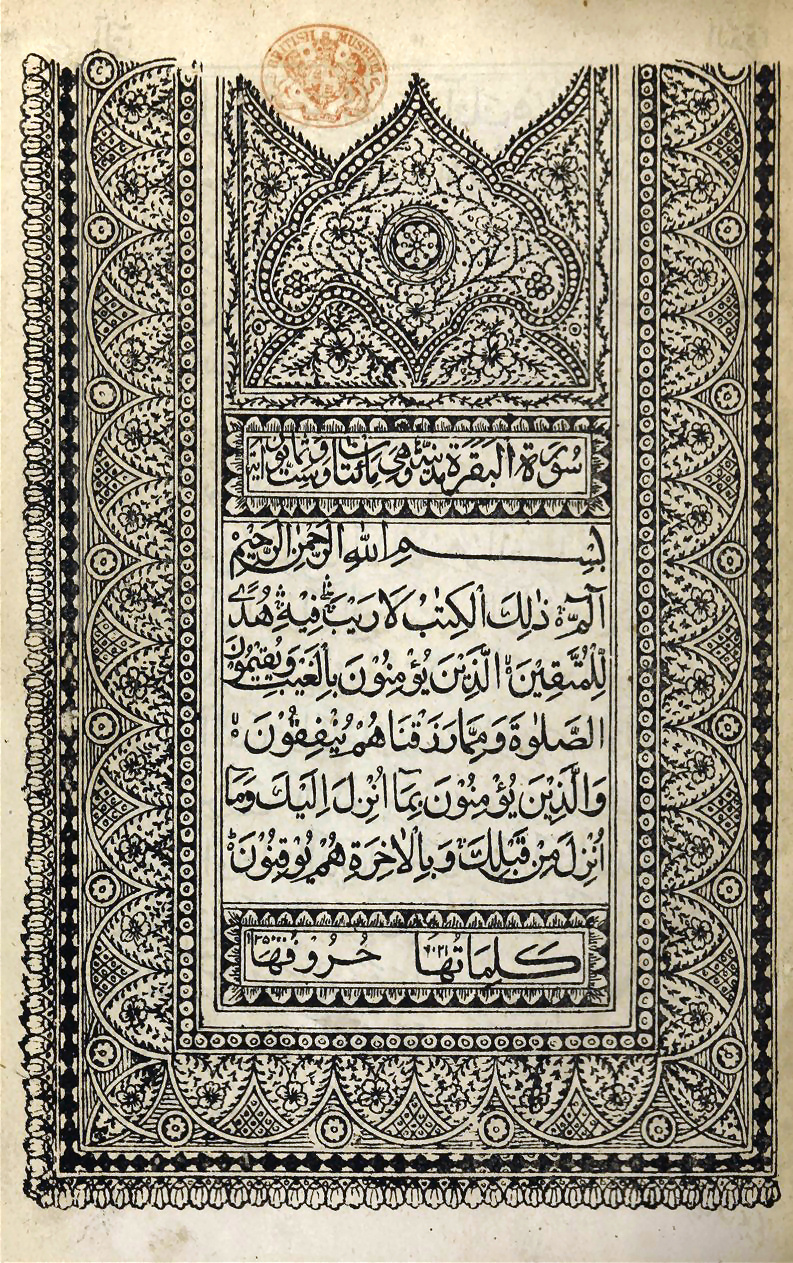 BRITISH MUSEUM
سُورَةُ الْبَقَرَةِ مدنيّة وهي مائتان وست وثمانون آية
بِسْمِ اللّٰهِ الرَّحْمٰنِ الرَّحِيْمِ
الٓمّٓ ذٰلِكَ الْكِتٰبُ لَا رَيْبَ فِيْهِ هُدًى
لِلْمُتَّقِيْنَ الَّذِيْنَ يُؤْمِنُوْنَ بِالْغَيْبِ وَيُقِيْمُوْنَ
الصَّلٰوةَ وَمِمَّا رَزَقْنَاهُمْ يُنْفِقُوْنَ
وَالَّذِيْنَ يُؤْمِنُوْنَ بِمَا اُنْزِلَ اِلَيْكَ وَمَا
اُنْزِلَ مِنْ قَبْلِكَ وَبِالْاٰخِرَةِ هُمْ يُوْقِنُوْنَ
كَلِمَاتُهَا ٦٠٢١ حُرُوفُهَا